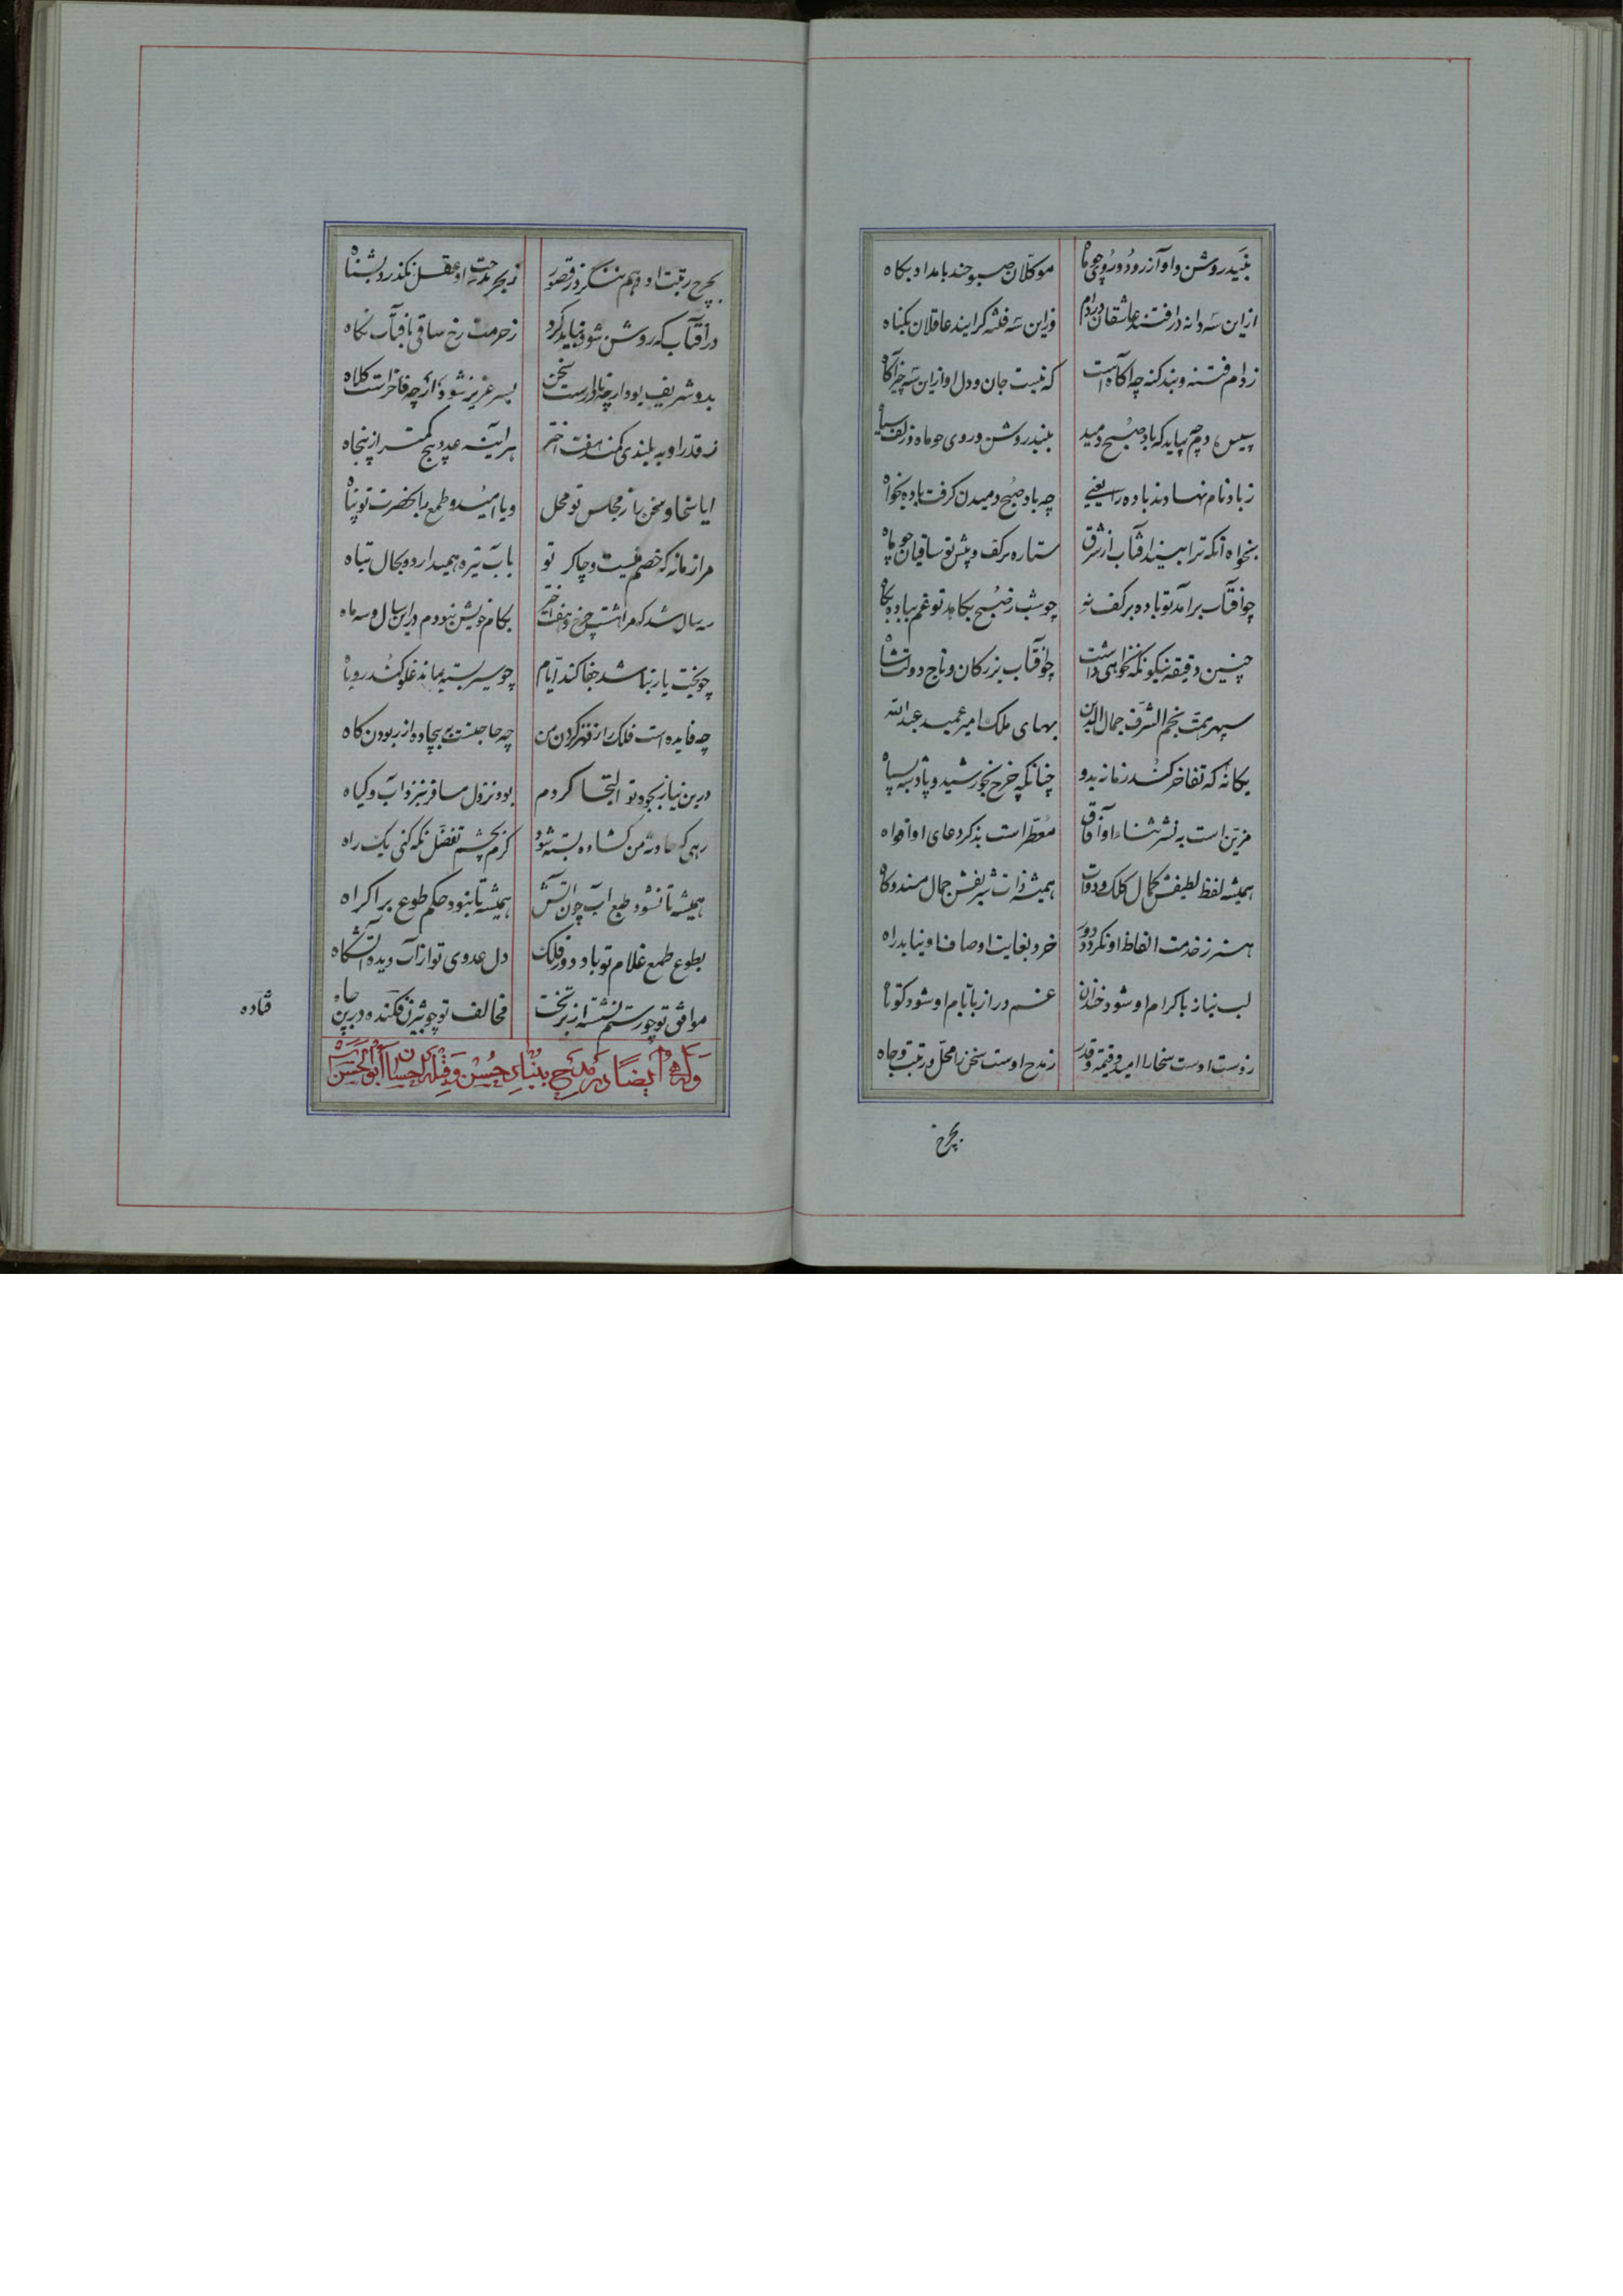 نبید روشن و آواز رود و روی چو ماه موکلان صبوحند بامداد بگاه
ازین سه دانه در افتند عاشقان در دام وزاین سه فتنه گرایند عاقلان بگناه
ز دام فتنه و بند گنه چه آگاهست که نیست جان و دل او ازین سه چیز آگاه
سپیده دم چه بباید که باد صبح دمید نبید روشن و روی چو ماه و زلف سیاه
ز باد نام نهادند باده را یعنی چه باد صبح دمیدن گرفت باده بخواه
بخواه آنکه ترا بیند آفتاب از شرق ستاره بر کف و پیش تو ساقیان چو ماه
چو آفتاب برآمد تو باده بر کف نه چو شب ز صبح بکاهد تو غم بباده بکاه
چنین دقیقه نیکو نگه خواهی داشت چو آفتاب بزرگان و تاج دولتشاه
سپهر همت نجم الشرف جمال الدین بهای ملک امیر عمید عبدالله
یگانه که تفاخر کند زمانه بدو چنانکه چرخ بخورشید و پادشه بسپاه
مزین است به نشر ثناء او آفاق معطر است بذکر دعای او افواه
همیشه لفظ لطیفش کمال کلک و دوات همیشه ذات شریفش جمال مسند و گاه
هنر ز خدمت الفاظ او نگردد دور خرد بغایت اوصاف او نیابد راه
لب نیاز باکرام او شود خندان غم دراز بایام او شود کوتاه
ز دست اوست سخا را امید و قیمت و قدر ز مدح اوست سخن را محل و رتبت و جاه
بچرخ
بچرخ رتبت او وهم ننگرد ز قصور ز بحر مدحت او عقل نگذرد بشناه
در آفتاب که روشن شود نباید کرد ز حرمت رخ ساقی بآفتاب نگاه
بدو شریف بود ار چه نادرست سخن بسر عزیز شود ار چه فاخر است کلاه
ز قدر او به بلندی کمند هفت اختر هر آینه عدد پنج کمتر از پنجاه
ایا سخا و سخن را ز مجلس تو محل و یا امید و طمع را بحضرت تو پناه
مرا زمانه که خصم منست و چاکر تو بآب تیره همیدارد و بحال تباه
سه سال شد که مرا هشت چرخ و هفت اختر بکام خویش نبودم درین سال و سه ماه
چو بخت یار نباشد جفا کند ایام چو سیر بسته بماند غلو کند روباه
چه فایده است فلک را ز قهر کردن من چه حاجتست ببیجاده از ربودن کاه
درین نیاز بجود تو التجا کردم بود نزول مسافر بنزد آب و گیاه
رهی که حادثه من گشاده بسته شود گرم بچشم تفضل نگه کنی یک راه
همیشه تا نشود طبع آب چون آتش همیشه تا نبود حکم طوع بر اکراه
بطوع طمع غلام تو باد دور فلک دل عدوی تو از آب دیده آتشگاه
موافق تو چو رستم نشسته از بر تخت مخالف تو چو بیژن فکنده در بن چاه
وله ایضا در مدیح بنیاد حسن و قبله احسان ابوالحسن
فتاده